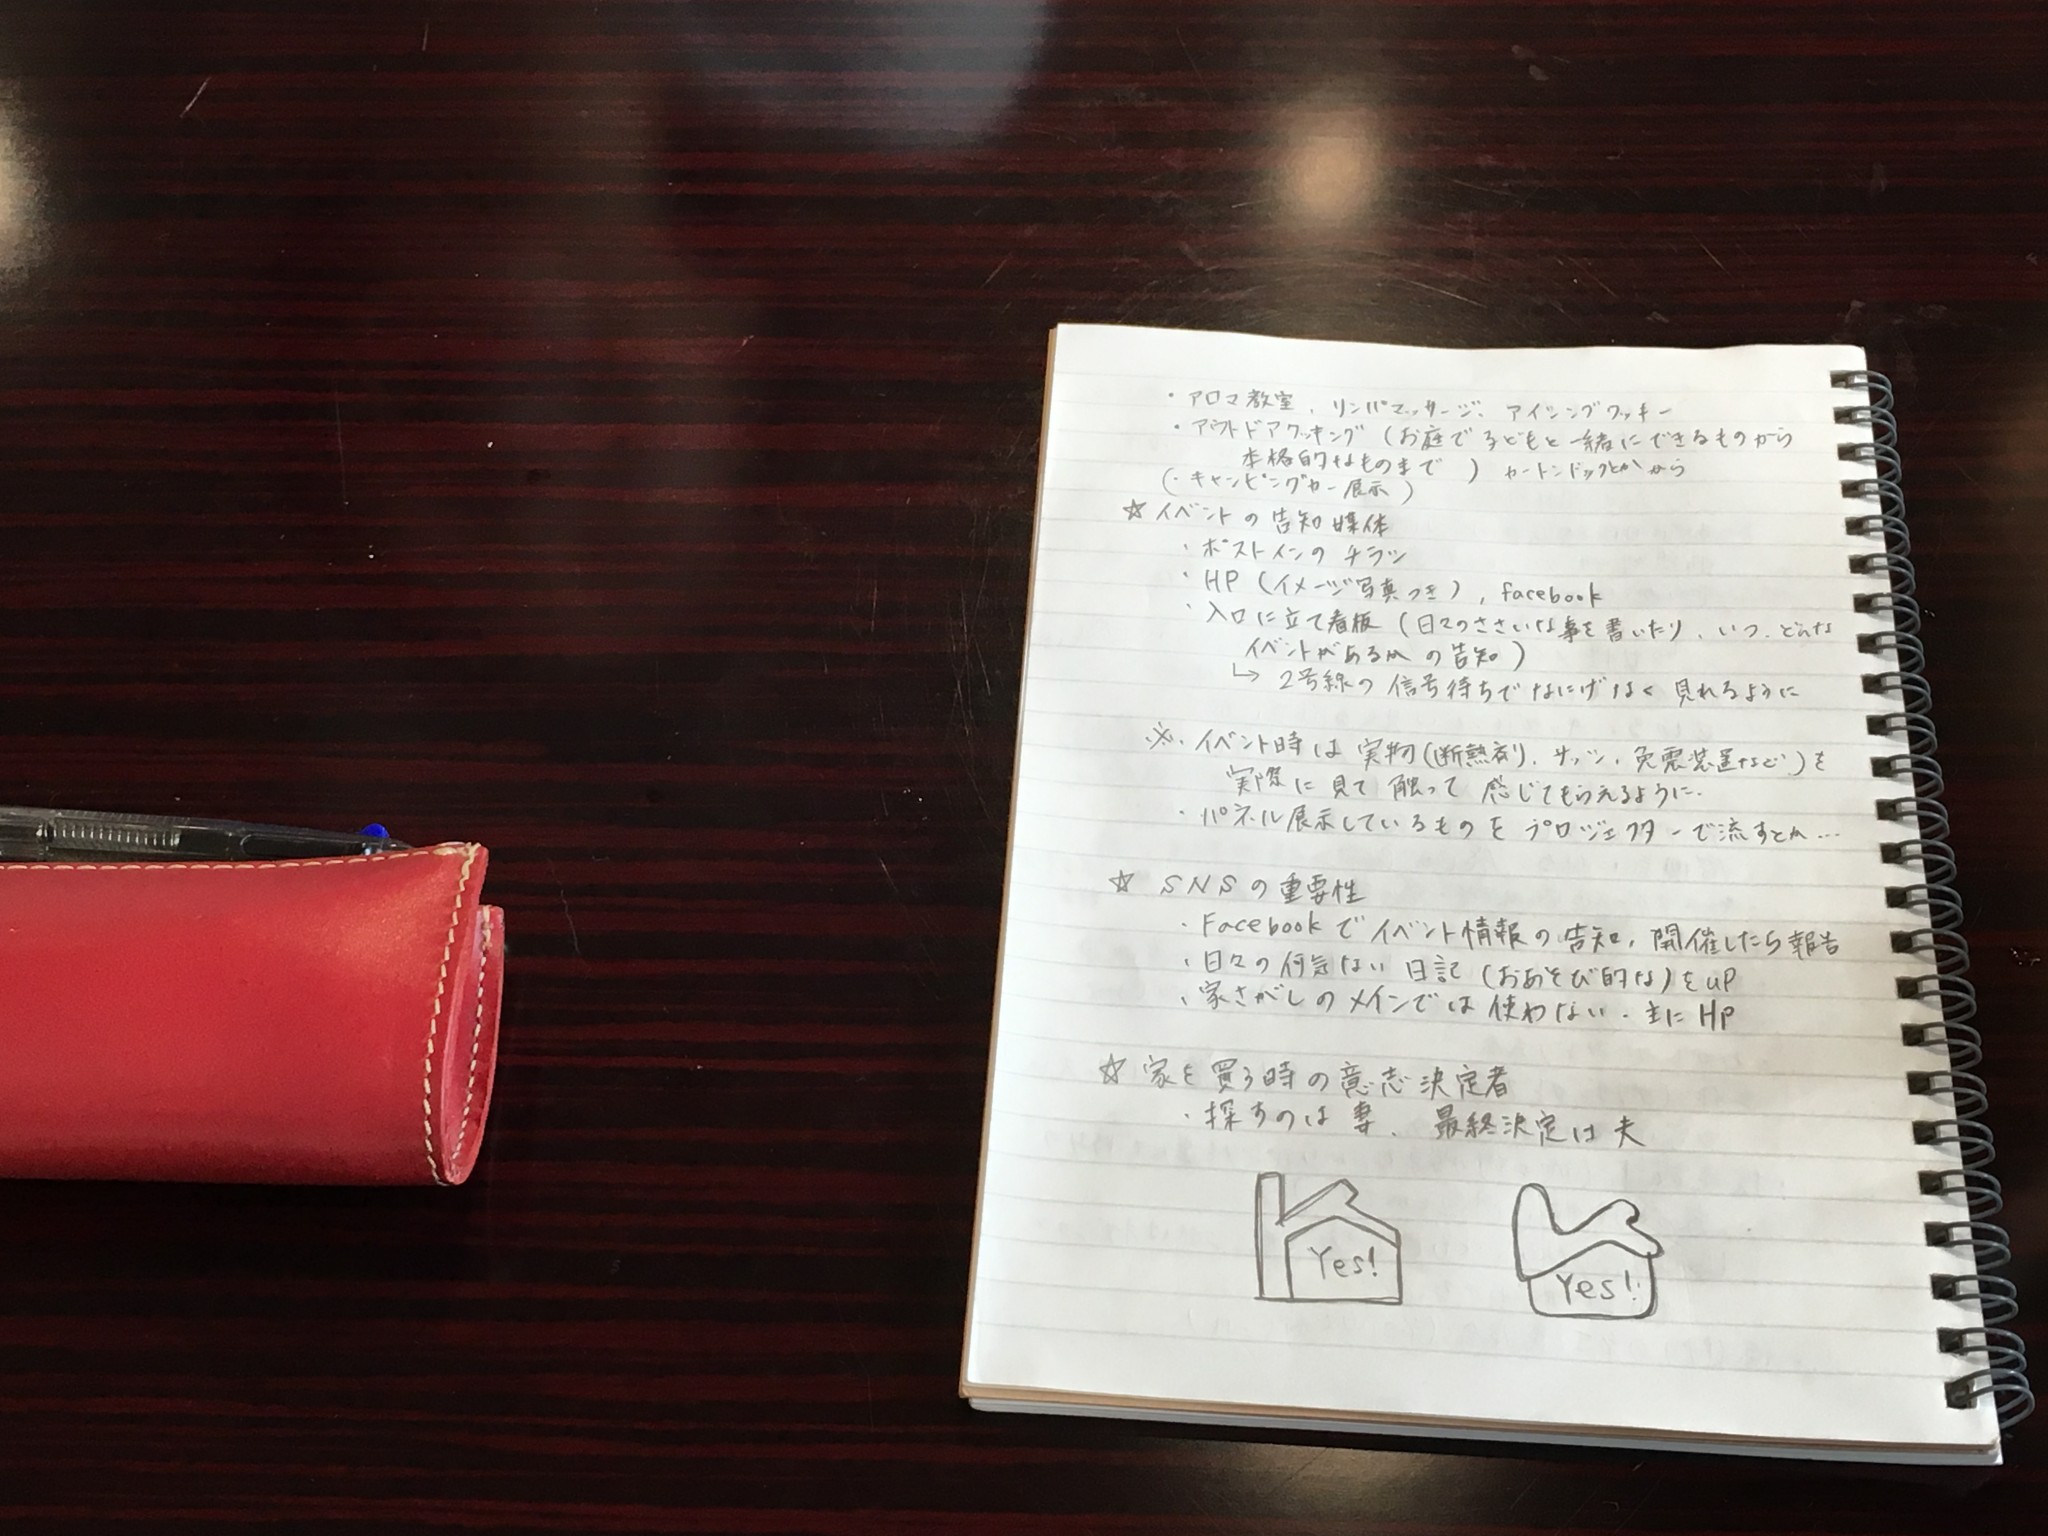 ・アロマ教室、リンパマッサージ、アイシングクッキー
・アウトドアクッキング (お庭で子どもと一緒にできるものから
本格的なものまで ) カートンドックとかから
(・キャンピングカー展示)
☆イベントの告知媒体
・ポストインのチラシ
・HP (イメージ写真つき), facebook
・入口に立て看板 (日々のささいな事を書いたり、いつ、どんな
イベントがあるかの告知)
↳ 2号線の信号待ちでなにげなく見れるように
※、イベント時は実物(断熱剤、サッシ、免震装置など)を
実際に見て触って感じてもらえるように.
・パネル展示しているものをプロジェクターで流すとか…
☆ SNSの重要性
・Facebookでイベント情報の告知、開催したら報告
・日々の何気ない日記 (おあそび的な)をup
・家さがしのメインでは使わない.主にHP
☆家を買う時の意志決定者
・探すのは妻、最終決定は夫
Yes!
Yes!